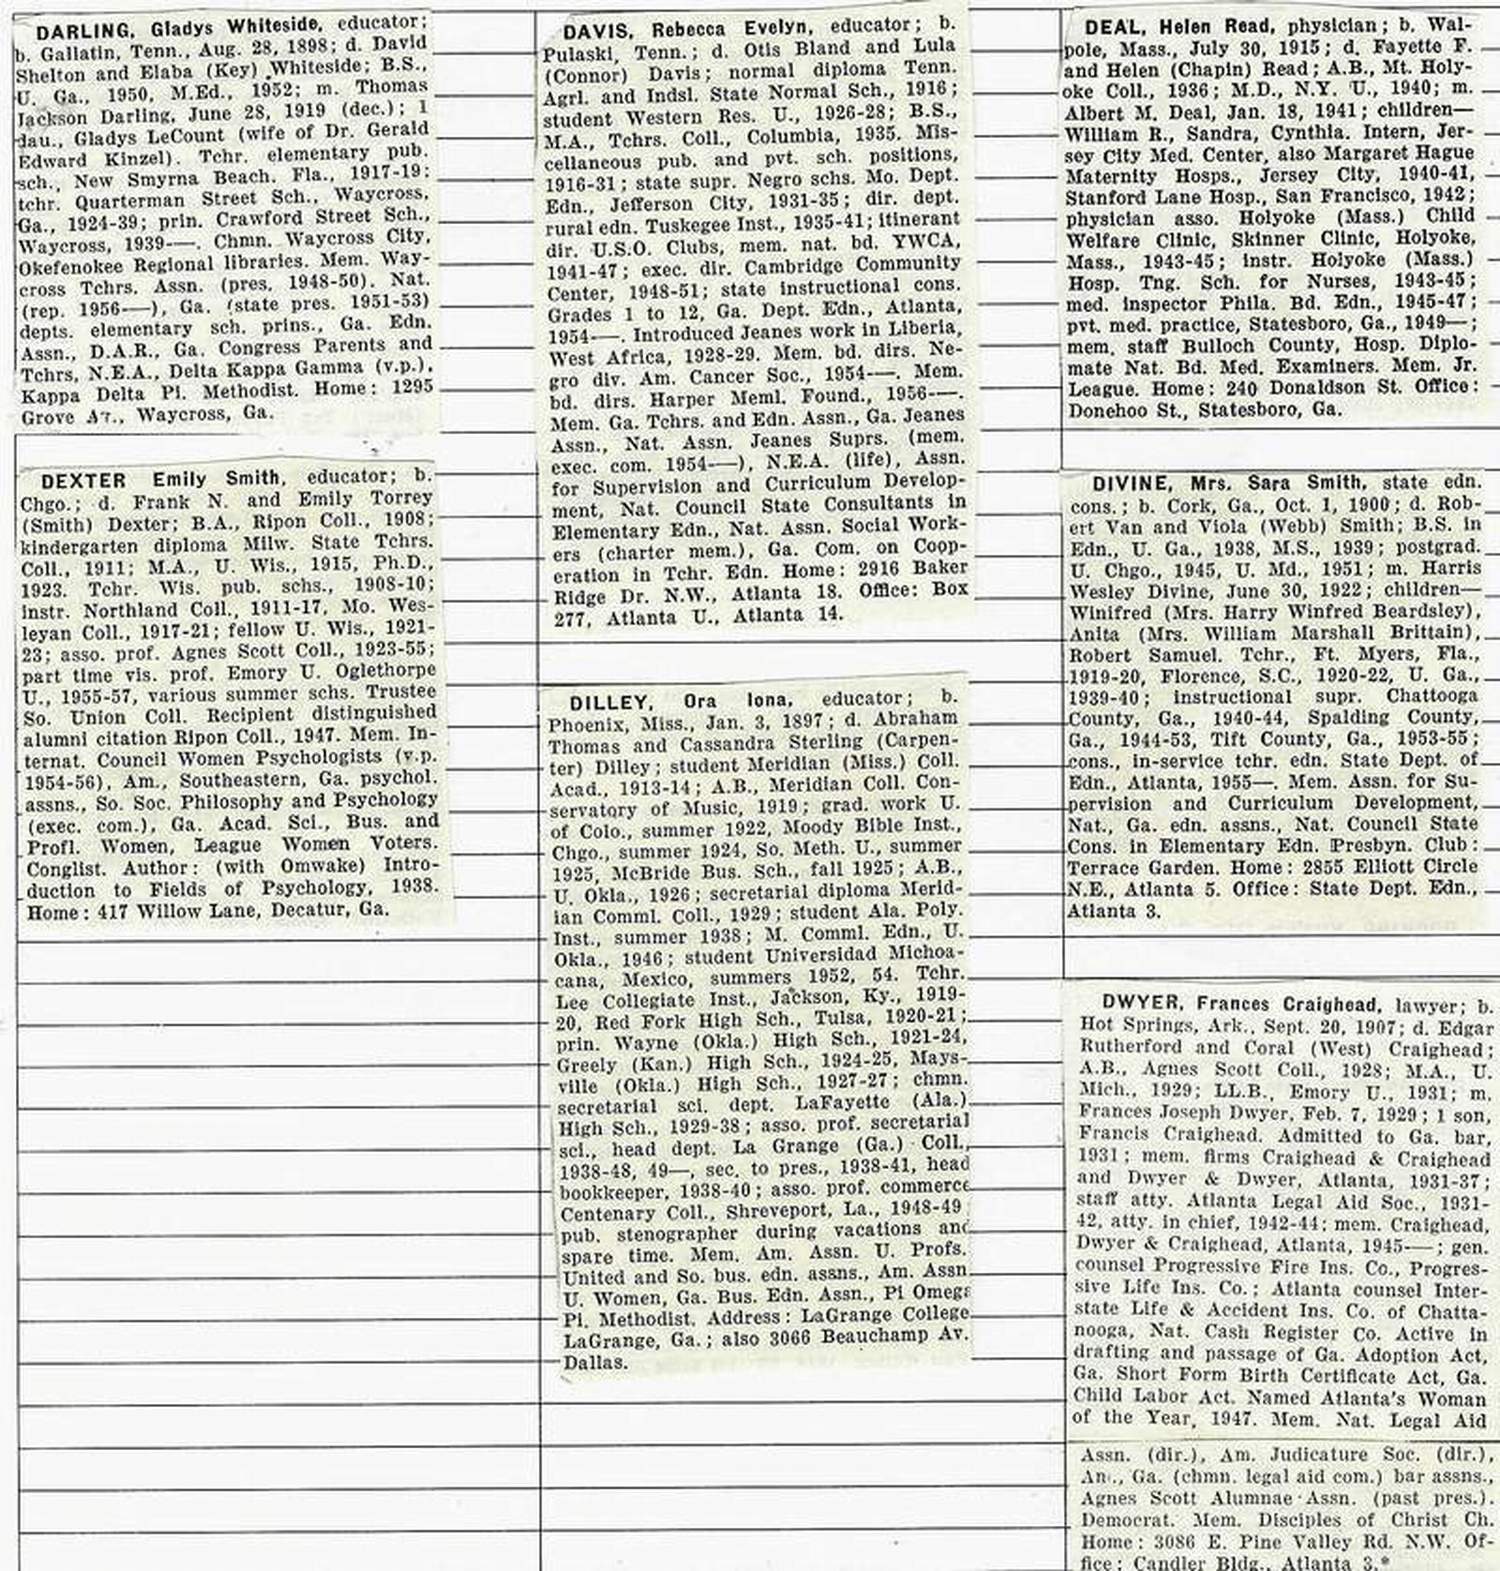 DARLING, Gladys Whiteside, educator;
b. Gallatin, Tenn., Aug. 28, 1898; d. David
Shelton and Elaba (Key) Whiteside; B.S.,
U. Ga., 1950, M.Ed., 1952; m. Thomas
Jackson Darling, June 28, 1919 (dec.); 1
dau., Gladys LeCount (wife of Dr. Gerald
Edward Kinzel). Tchr. elementary pub.
sch., New Smyrna Beach. Fla., 1917-19;
tchr. Quarterman Street Sch., Waycross,
Ga., 1924-39; prin. Crawford Street Sch.,
Waycross, 1939—. Chmn. Waycross City,
Okefenokee Regional libraries. Mem. Way-
cross Tchrs. Assn. (pres. 1948-50). Nat.
(rep. 1956—), Ga. (state pres. 1951-53)
depts. elementary sch. prins., Ga. Edn.
Assn., D.A.R., Ga. Congress Parents and
Tchrs, N.E.A., Delta Kappa Gamma (v.p.),
Kappa Delta Pi. Methodist. Home: 1295
Grove Av., Waycross, Ga.
DEXTER Emily Smith, educator; b.
Chgo.; d. Frank N. and Emily Torrey
(Smith) Dexter; B.A., Ripon Coll., 1908;
kindergarten diploma Milw. State Tchrs.
Coll., 1911; M.A., U. Wis., 1915, Ph.D.,
1923. Tchr. Wis. pub. schs., 1908-10;
instr. Northland Coll., 1911-17, Mo. Wes-
leyan Coll., 1917-21; fellow U. Wis., 1921-
23; asso. prof. Agnes Scott Coll., 1923-55;
part time vis. prof. Emory U. Oglethorpe
U., 1955-57, various summer schs. Trustee
So. Union Coll. Recipient distinguished
alumni citation Ripon Coll., 1947. Mem. In-
ternat. Council Women Psychologists (v.p.
1954-56), Am., Southeastern, Ga. psychol.
assns., So. Soc. Philosophy and Psychology
(exec. com.), Ga. Acad. Sci., Bus. and
Profl. Women, League Women Voters.
Conglist. Author: (with Omwake) Intro-
duction to Fields of Psychology, 1938.
Home: 417 Willow Lane, Decatur, Ga.
DAVIS, Rebecca Evelyn, educator; b.
Pulaski, Tenn.; d. Otis Bland and Lula
(Connor) Davis; normal diploma Tenn.
Agrl. and Indsl. State Normal Sch., 1916;
student Western Res. U., 1926-28; B.S.,
M.A., Tchrs. Coll., Columbia, 1935. Mis-
cellaneous pub. and pvt. sch. positions,
1916-31; state supr. Negro schs. Mo. Dept.
Edn., Jefferson City, 1931-35; dir. dept.
rural edn. Tuskegee Inst., 1935-41; itinerant
dir. U.S.O. Clubs, mem. nat. bd. YWCA,
1941-47; exec. dir. Cambridge Community
Center, 1948-51; state instructional cons.
Grades 1 to 12, Ga. Dept. Edn., Atlanta,
1954—. Introduced Jeanes work in Liberia,
West Africa, 1928-29. Mem. bd. dirs. Ne-
gro div. Am. Cancer Soc., 1954—. Mem.
bd. dirs. Harper Meml. Found., 1956—.
Mem. Ga. Tchrs. and Edn. Assn., Ga. Jeanes
Assn., Nat. Assn. Jeanes Suprs. (mem.
exec. com. 1954—), N.E.A. (life), Assn.
for Supervision and Curriculum Develop-
ment, Nat. Council State Consultants in
Elementary Edn., Nat. Assn. Social Work-
ers (charter mem.), Ga. Com. on Coop-
eration in Tchr. Edn. Home: 2916 Baker
Ridge Dr. N.W., Atlanta 18. Office: Box
277, Atlanta U., Atlanta 14.
DILLEY, Ora Iona, educator; b.
Phoenix, Miss., Jan. 3, 1897; d. Abraham
Thomas and Cassandra Sterling (Carpen-
ter) Dilley; student Meridian (Miss.) Coll.
Acad., 1913-14; A.B., Meridian Coll. Con-
servatory of Music, 1919; grad. work U.
of Colo., summer 1922, Moody Bible Inst.,
Chgo., summer 1924, So. Meth. U., summer
1925, McBride Bus. Sch., fall 1925; A.B.,
U. Okla., 1926; secretarial diploma Merid-
ian Comml. Coll., 1929; student Ala. Poly.
Inst., summer 1938; M. Comml. Edn., U.
Okla., 1946; student Universidad Michoa-
cana, Mexico, summers 1952, 54. Tchr.
Lee Collegiate Inst., Jackson, Ky., 1919-
20, Red Fork High Sch., Tulsa, 1920-21;
prin. Wayne (Okla.) High Sch., 1921-24,
Greely (Kan.) High Sch., 1924-25, Mays-
ville (Okla.) High Sch., 1927-27; chmn.
secretarial sci. dept. LaFayette (Ala.)
High Sch., 1929-38; asso. prof. secretarial
sci., head dept. La Grange (Ga.) Coll.,
1938-48, 49—, sec. to pres., 1938-41, head
bookkeeper, 1938-40; asso. prof. commerce
Centenary Coll., Shreveport, La., 1948-49;
pub. stenographer during vacations and
spare time. Mem. Am. Assn. U. Profs.
United and So. bus. edn. assns., Am. Assn
U. Women, Ga. Bus. Edn. Assn., Pi Omega
Pi. Methodist. Address: LaGrange College
LaGrange, Ga.; also 3066 Beauchamp Av.
Dallas.
DEAL, Helen Read, physician; b. Wal-
pole, Mass., July 30, 1915; d. Fayette F.
and Helen (Chapin) Read; A.B., Mt. Holy-
oke Coll., 1936; M.D., N.Y. U., 1940; m.
Albert M. Deal, Jan. 18, 1941; children—
William R., Sandra, Cynthia. Intern, Jer-
sey City Med. Center, also Margaret Hague
Maternity Hosps., Jersey City, 1940-41,
Stanford Lane Hosp., San Francisco, 1942;
physician asso. Holyoke (Mass.) Child
Welfare Clinic, Skinner Clinic, Holyoke,
Mass., 1943-45; instr. Holyoke (Mass.)
Hosp. Tng. Sch. for Nurses, 1943-45;
med. inspector Phila. Bd. Edn., 1945-47;
pvt. med. practice, Statesboro, Ga., 1949—;
mem. staff Bulloch County, Hosp. Diplo-
mate Nat. Bd. Med. Examiners. Mem. Jr.
League. Home: 240 Donaldson St. Office:
Donehoo St., Statesboro, Ga.
DIVINE, Mrs. Sara Smith, state edn.
cons.; b. Cork, Ga., Oct. 1, 1900; d. Rob-
ert Van and Viola (Webb) Smith; B.S. in
Edn., U. Ga., 1938, M.S., 1939; postgrad.
U. Chgo., 1945, U. Md., 1951; m. Harris
Wesley Divine, June 30, 1922; children—
Winifred (Mrs. Harry Winfred Beardsley),
Anita (Mrs. William Marshall Brittain),
Robert Samuel. Tchr., Ft. Myers, Fla.,
1919-20, Florence, S.C., 1920-22, U. Ga.,
1939-40; instructional supr. Chattooga
County, Ga., 1940-44, Spalding County,
Ga., 1944-53, Tift County, Ga., 1953-55;
cons., in-service tchr. edn. State Dept. of
Edn., Atlanta, 1955—. Mem. Assn. for Su-
pervision and Curriculum Development,
Nat., Ga. edn. assns., Nat. Council State
Cons. in Elementary Edn. Presbyn. Club:
Terrace Garden. Home: 2855 Elliott Circle
N.E., Atlanta 5. Office: State Dept. Edn.,
Atlanta 3.
DWYER, Frances Craighead, lawyer; b.
Hot Springs, Ark., Sept. 20, 1907; d. Edgar
Rutherford and Coral (West) Craighead;
A.B., Agnes Scott Coll., 1928; M.A., U.
Mich., 1929; LL.B., Emory U., 1931; m.
Frances Joseph Dwyer, Feb. 7, 1929; 1 son,
Francis Craighead. Admitted to Ga. bar,
1931; mem. firms Craighead & Craighead
and Dwyer & Dwyer, Atlanta, 1931-37;
staff atty. Atlanta Legal Aid Soc., 1931-
42, atty. in chief, 1942-44; mem. Craighead,
Dwyer & Craighead, Atlanta, 1945—; gen.
counsel Progressive Fire Ins. Co., Progres-
sive Life Ins. Co.; Atlanta counsel Inter-
state Life & Accident Ins. Co. of Chatta-
nooga, Nat. Cash Register Co. Active in
drafting and passage of Ga. Adoption Act,
Ga. Short Form Birth Certificate Act, Ga.
Child Labor Act. Named Atlanta's Woman
of the Year, 1947. Mem. Nat. Legal Aid
Assn. (dir.), Am. Judicature Soc. (dir.),
Am., Ga. (chmn. legal aid com.) bar assns.,
Agnes Scott Alumnae Assn. (past pres.).
Democrat. Mem. Disciples of Christ Ch.
Home: 3086 E. Pine Valley Rd. N.W. Of-
fice: Candler Bldg., Atlanta 3.*